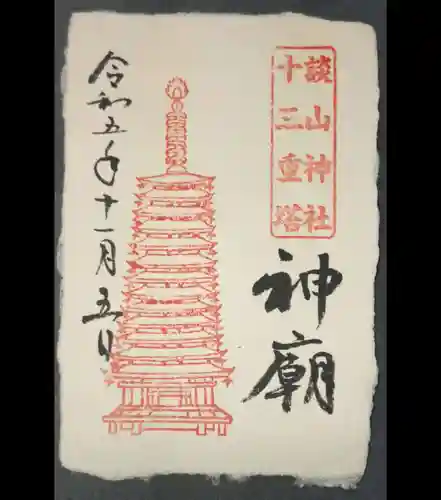 談山神社
十三重塔
神廟
令和五年十一月五日